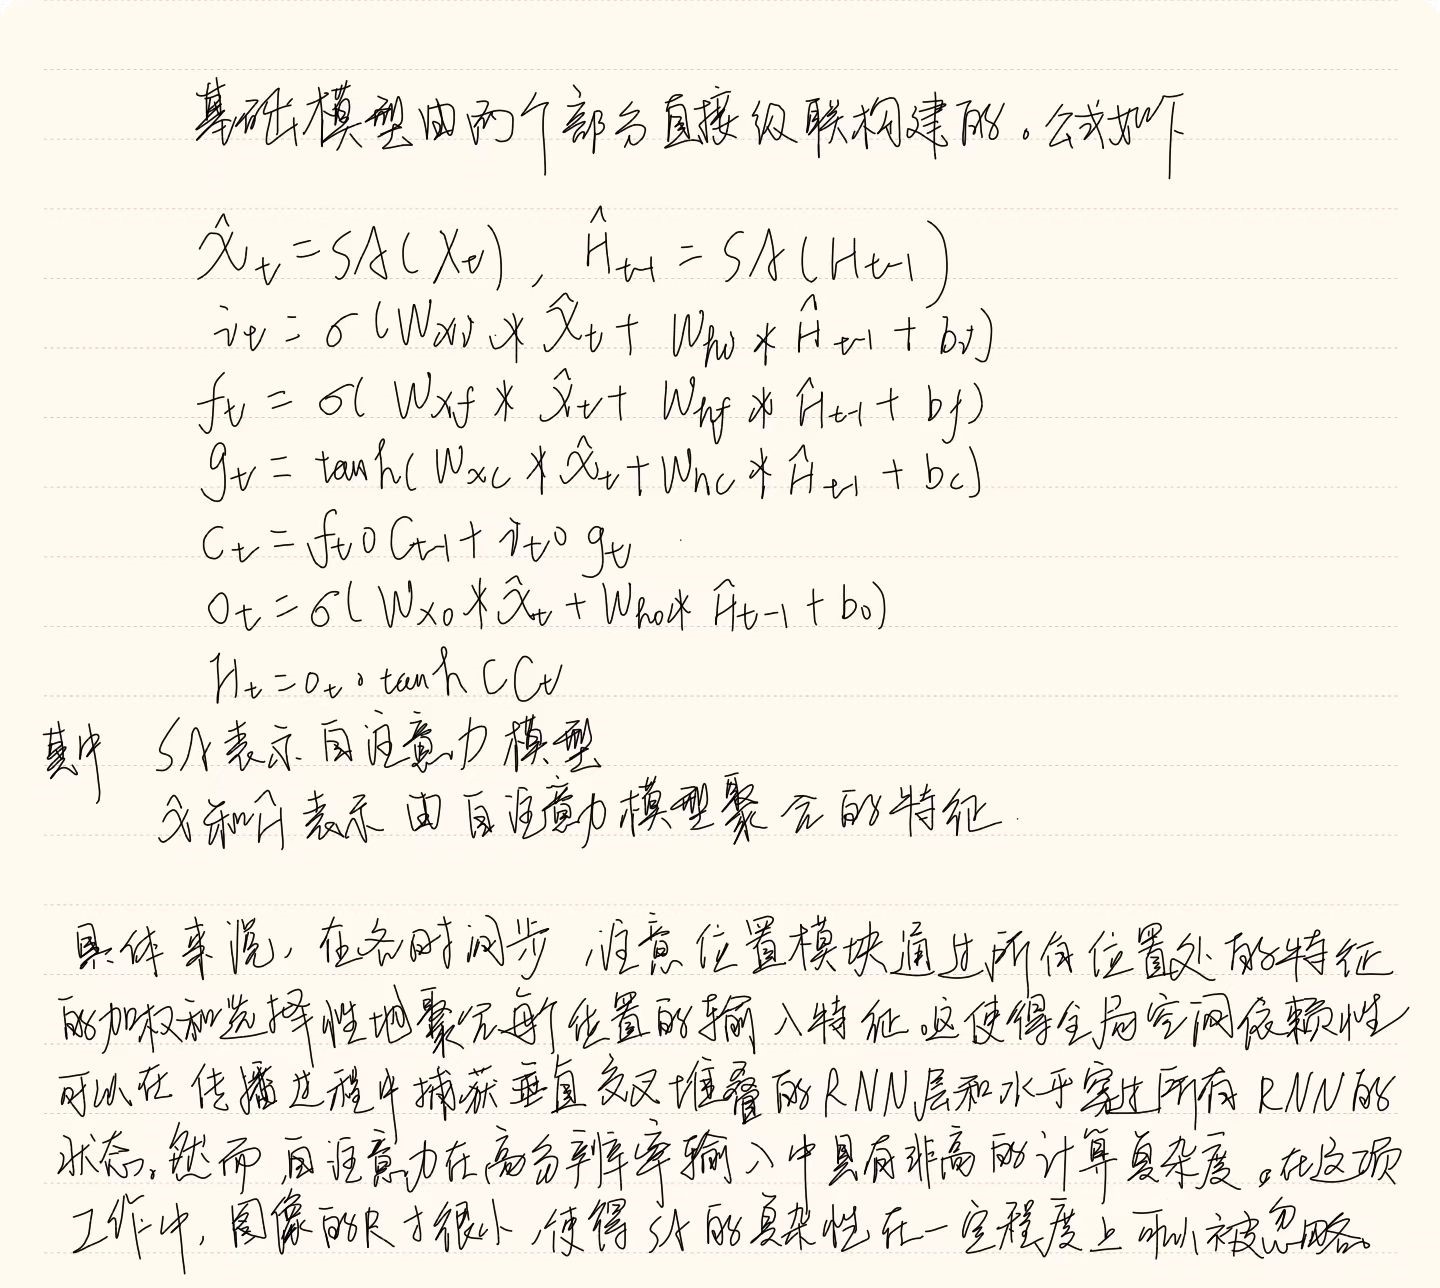 基础模型由两个部分直接级联构建的。公式如下
X̂t = SA(Xt), Ĥt-1 = SA(Ht-1)
it = σ(Wxi * X̂t + Whi * Ĥt-1 + bi)
ft = σ(Wxf * X̂t + Whf * Ĥt-1 + bf)
gt = tanh(Wxc * X̂t + Whc * Ĥt-1 + bc)
Ct = ft∘Ct-1 + it∘gt
ot = σ(Wxo * X̂t + Who * Ĥt-1 + bo)
Ht = ot∘tanh(Ct
其中 SA表示自注意力模型
X̂和Ĥ表示由自注意力模型聚合的特征.
具体来说,在各时间步,注意位置模块通过所有位置处的特征
的加权和选择性地聚合每个位置的输入特征。这使得全局空间依赖性
可以在传播过程中捕获垂直交叉堆叠的RNN层和水平穿过所有RNN的
状态。然而自注意力在高分辨率输入中具有非高的计算复杂度。在这项
工作中,图像的尺寸很小,使得SA的复杂性在一定程度上可以被忽略。